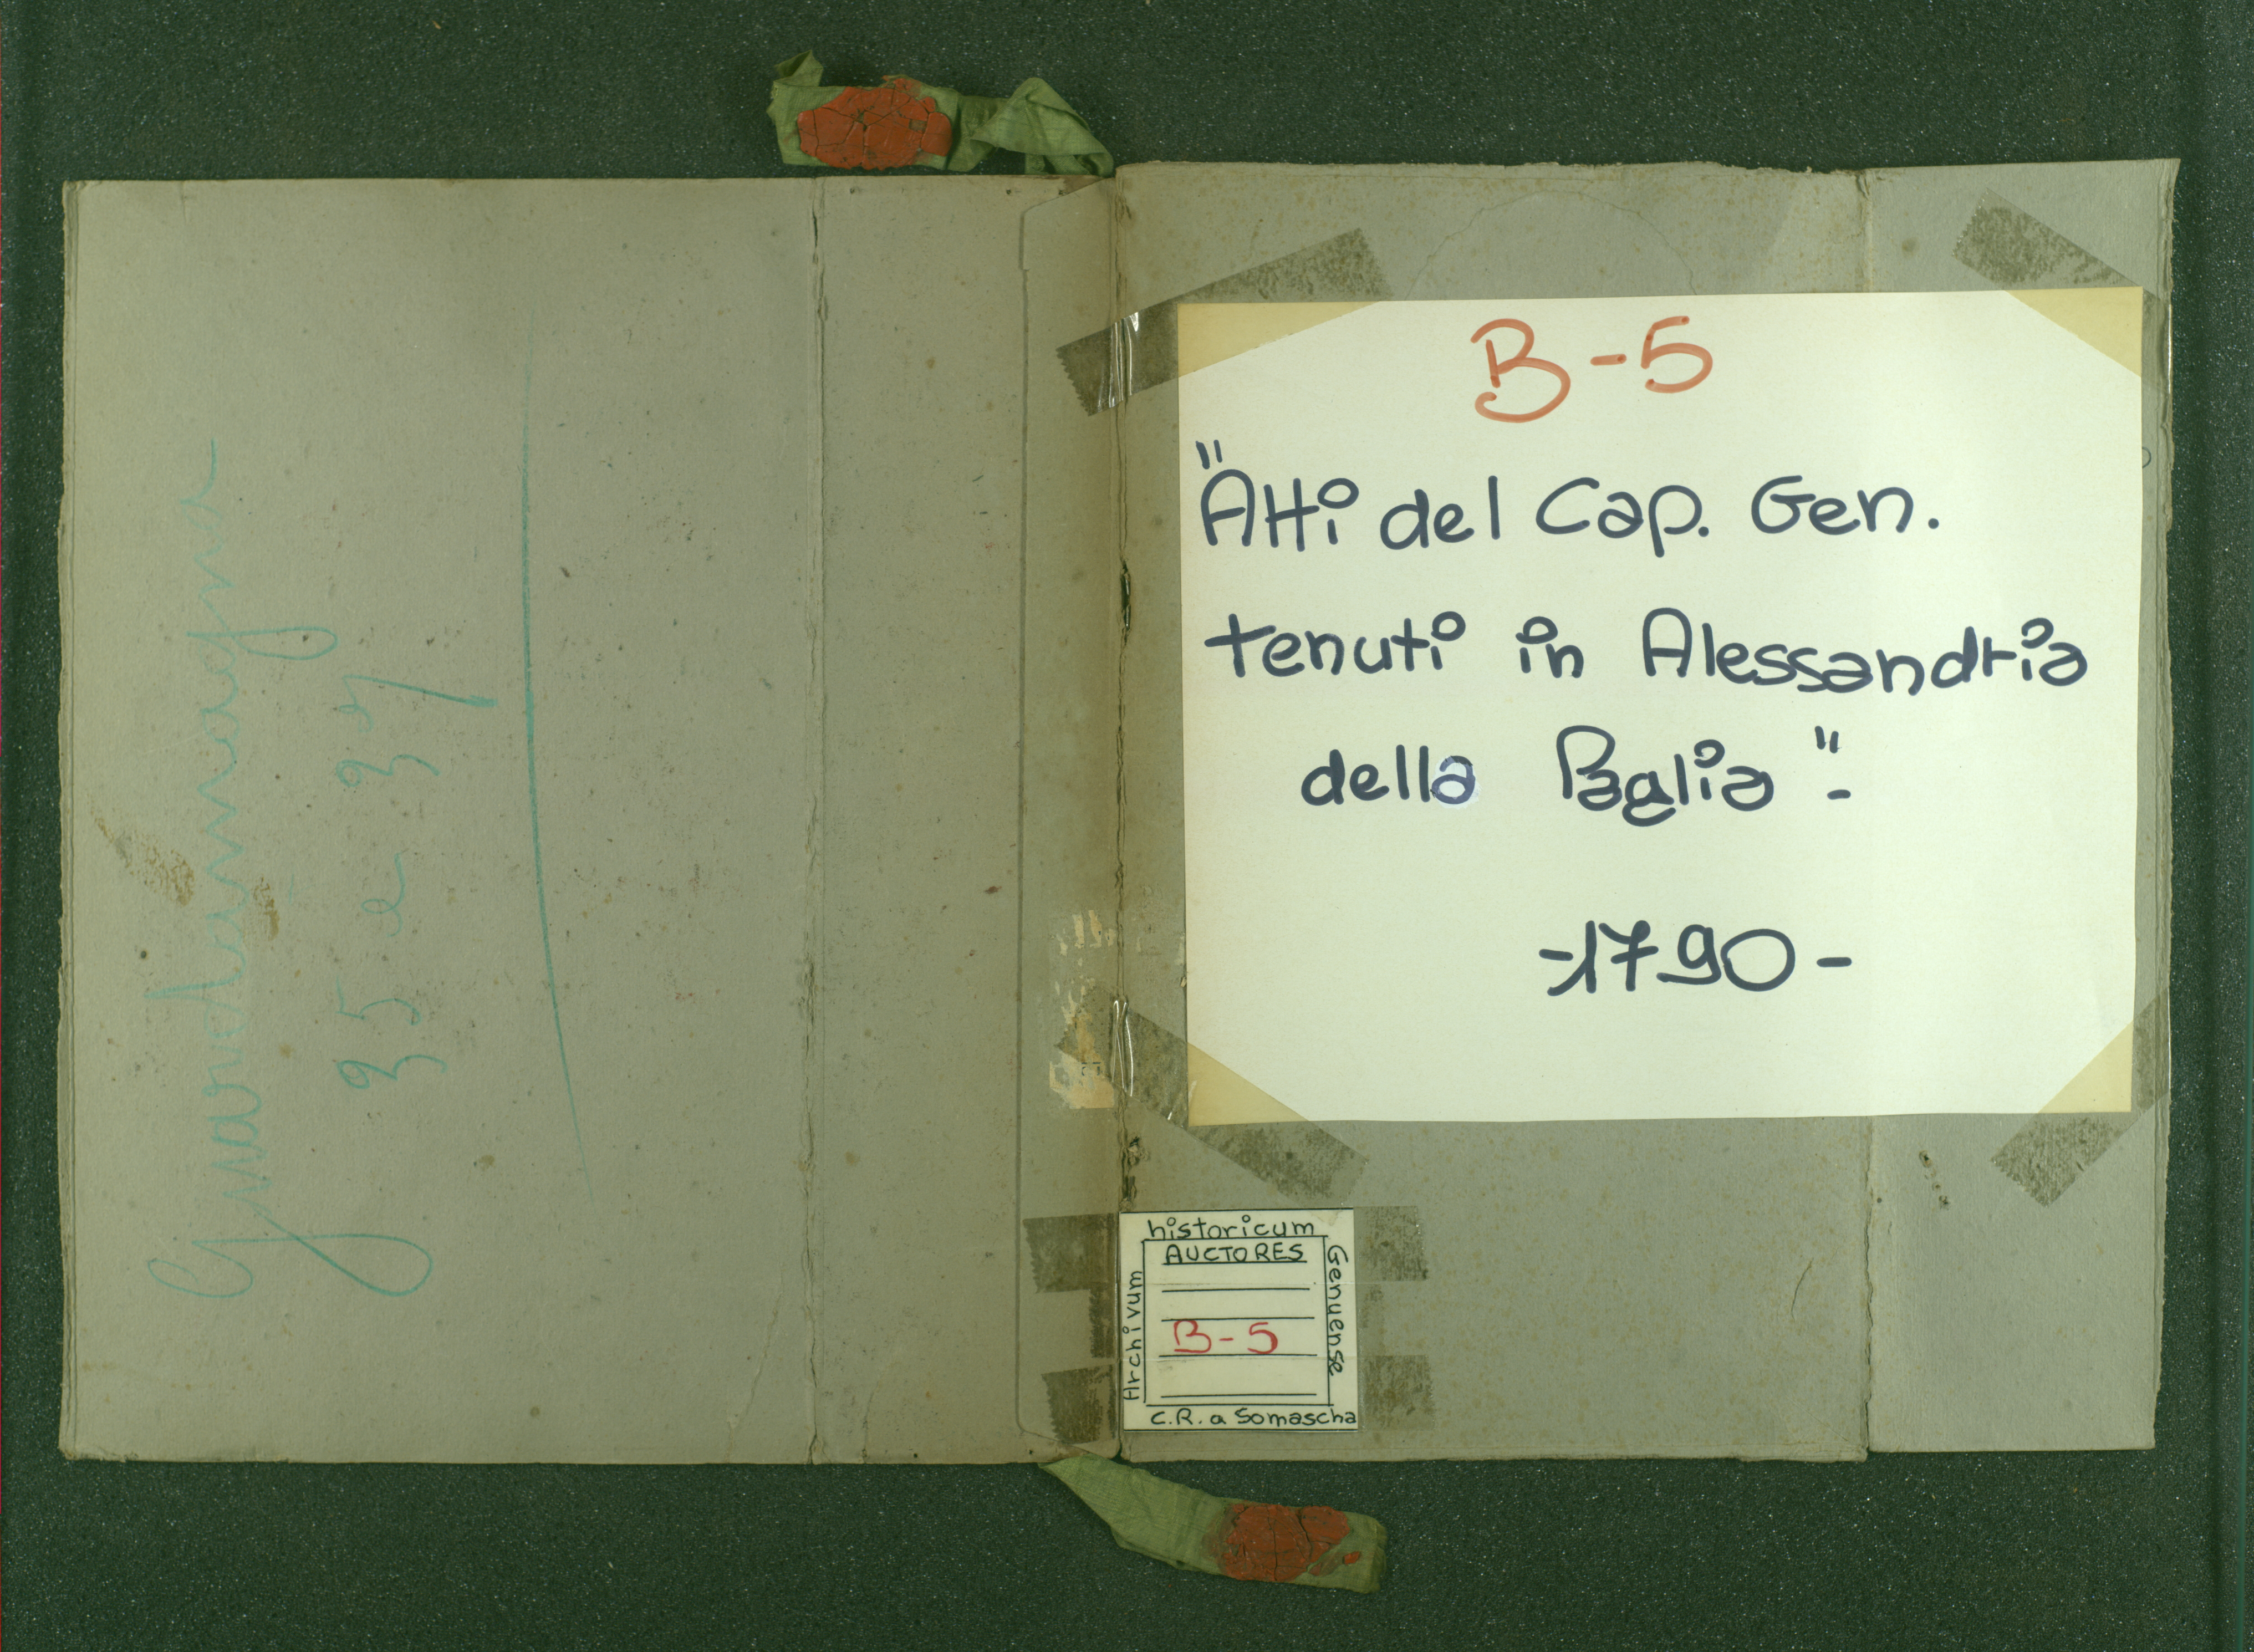 Guardamagna
35 e 37
B-5
"Atti del Cap. Gen.
tenuti in Alessandria
della Paglia"-
-1790-
historicum
AUCTORES
Archivum
Genuense
B-5
C.R. a Somascha